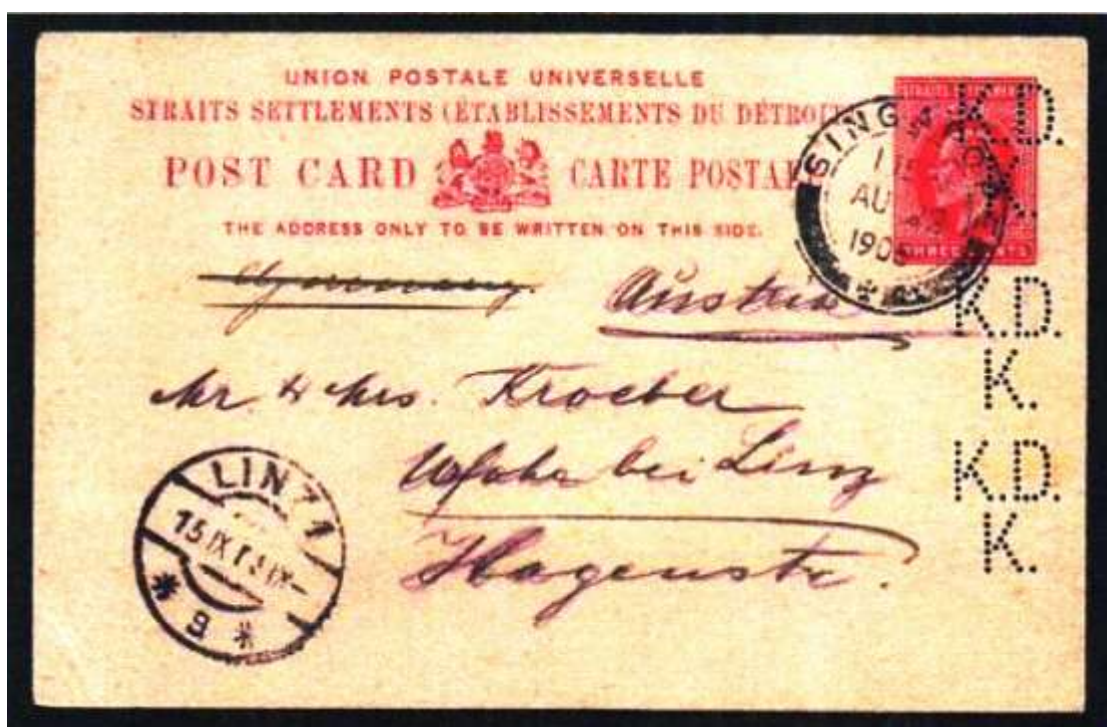 UNION POSTALE UNIVERSELLE
STRAITS SETTLEMENTS (ÉTABLISSEMENTS DU DÉTROIT
POST CARD CARTE POSTALE
THE ADDRESS ONLY TO BE WRITTEN ON THIS SIDE.
STRAITS SETTLEMENTS
THREE CENTS
SINGAPORE
AU
190
K.D.
K.
Germany.
Austria
K.D.
K.
Mr & Mrs. Kroeber
Urfahr bei Linz
Hagenstr.
K.D.
K.
LINZ 1
15 IX
* g *